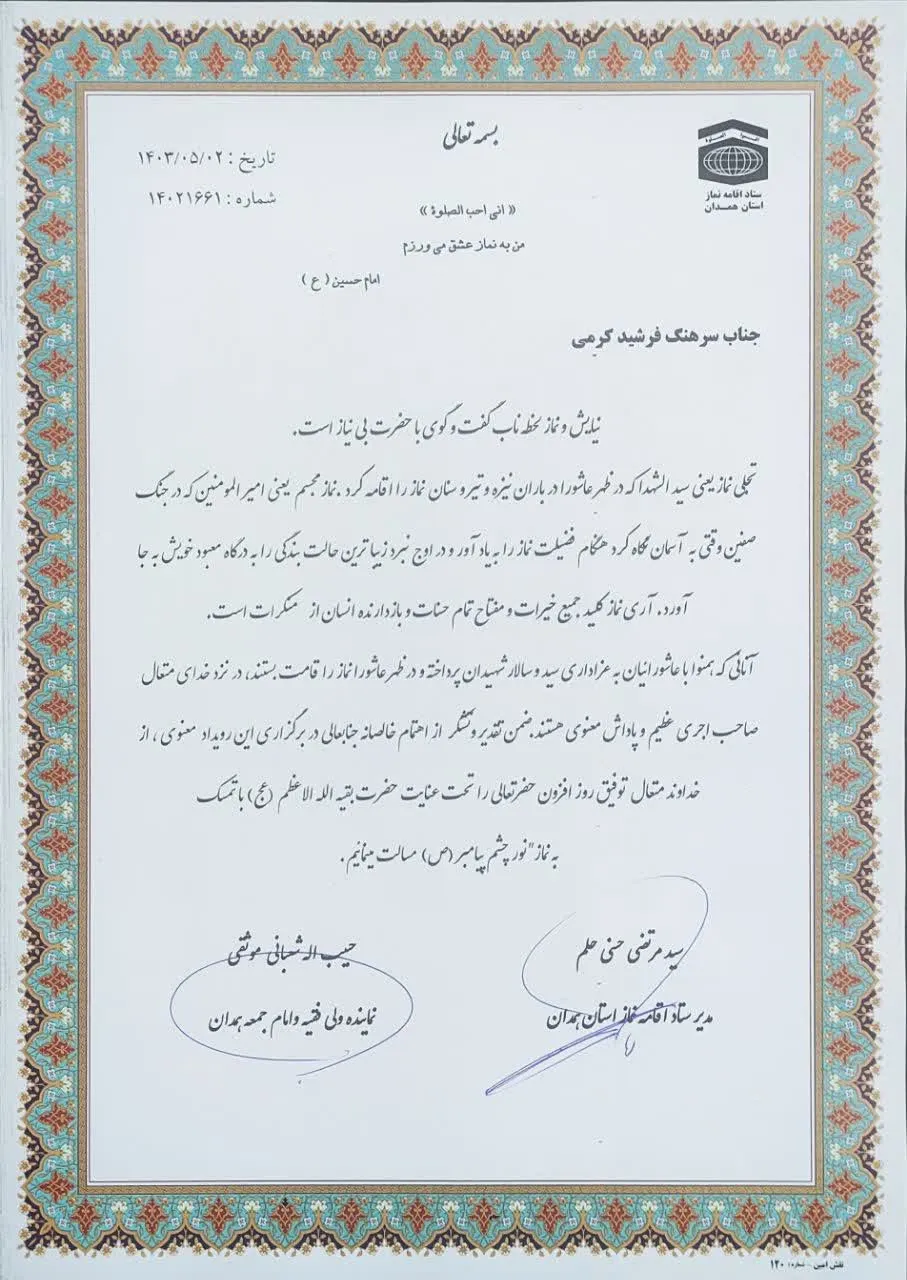 بسمه تعالی
تاریخ : ۱۴۰۳/۰۵/۰۲
شماره : ۱۴۰۲۱۶۶۱
ستاد اقامه نماز
استان همدان
« انی احب الصلوة »
من به نماز عشق می ورزم
امام حسین ( ع )
جناب سرهنگ فرشید کرمی
نیایش و نماز لحظه ناب گفت و گوی با حضرت بی نیاز است.
تجلی نماز یعنی سید الشهدا که در ظهر عاشورا در باران نیزه و تیر و سنان نماز را اقامه کرد . نماز مجسم یعنی امیر المومنین که در جنگ
صفین وقتی به آسمان نگاه کرد هنگام فضیلت نماز را به یاد آور و در اوج نبرد زیبا ترین حالت بندگی را به درگاه معبود خویش به جا
آورد. آری نماز کلید جمیع خیرات و مفتاح تمام حسنات و بازدارنده انسان از منکرات است.
آنانی که همنوا با عاشورائیان به عزاداری سید و سالار شهیدان پرداخته و در ظهر عاشورا نماز را قامت بستند، در نزد خدای متعال
صاحب اجری عظیم و پاداش معنوی هستند.ضمن تقدیر وتشکر از اهتمام خالصانه جنابعالی در برگزاری این رویداد معنوی ، از
خداوند متعال توفیق روز افزون حضرتعالی را تحت عنایت حضرت بقیه الله الاعظم (عج) با تمسک
به نماز "نور چشم پیامبر (ص) مسالت مینمائیم .
سید مرتضی حسنی حلم
مدیر ستاد اقامه نماز استان همدان
حبیب اله شعبانی موثقی
نماینده ولی فقیه وامام جمعه همدان
نقش امین - شماره: ۱۲۰